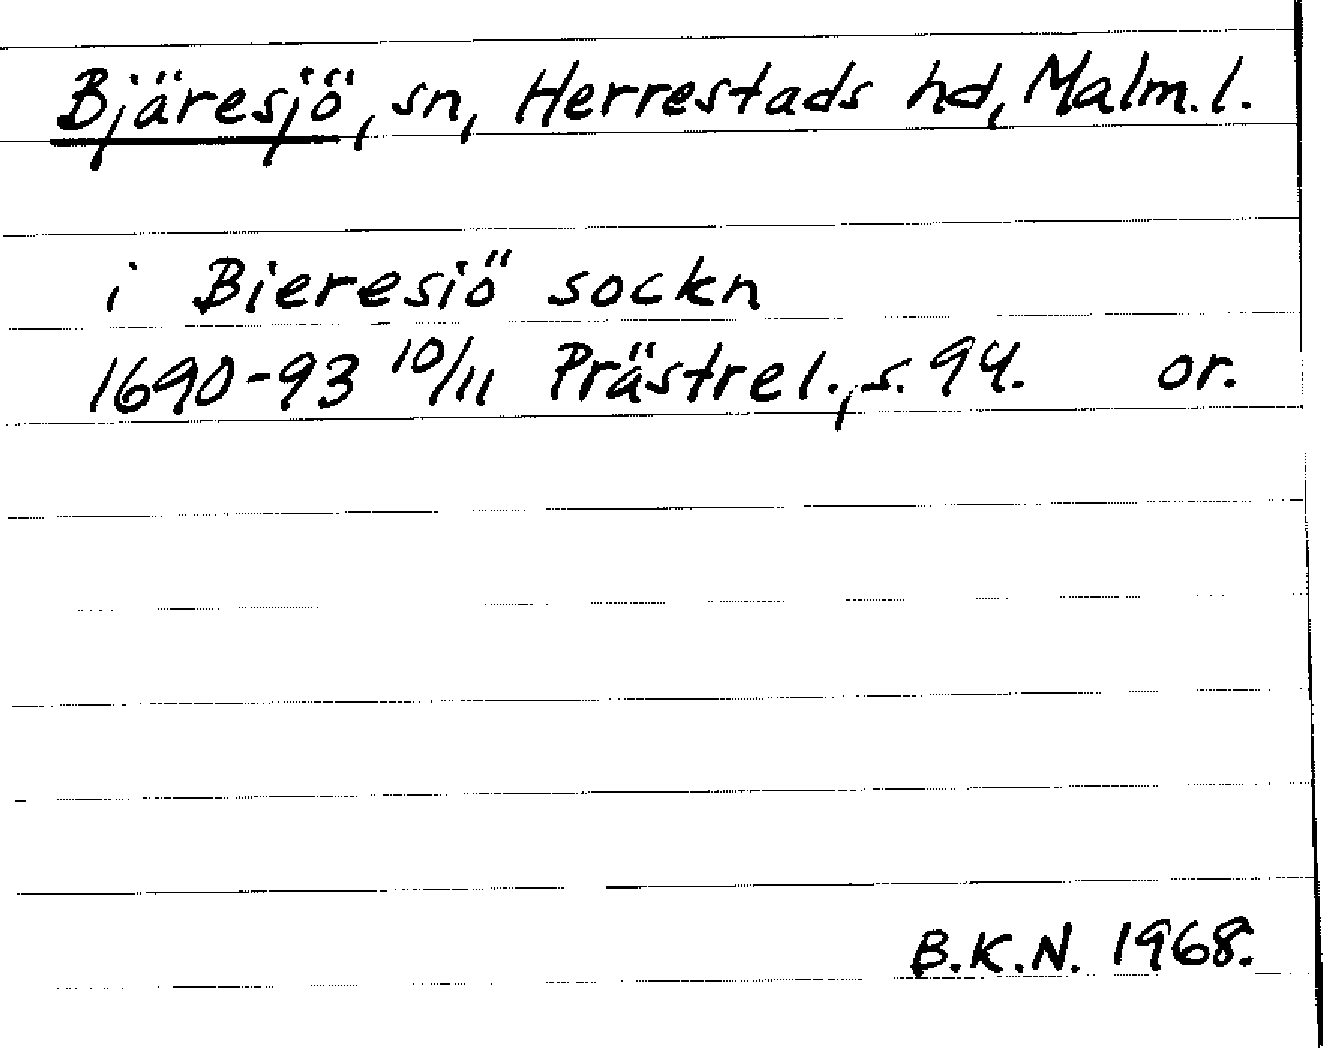 Bjäresjö, sn, Herrestads hd, Malm. l.
i Bieresiö sockn
1690-93 10/11 Prästrel., s. 94. or.
B.K.N. 1968.